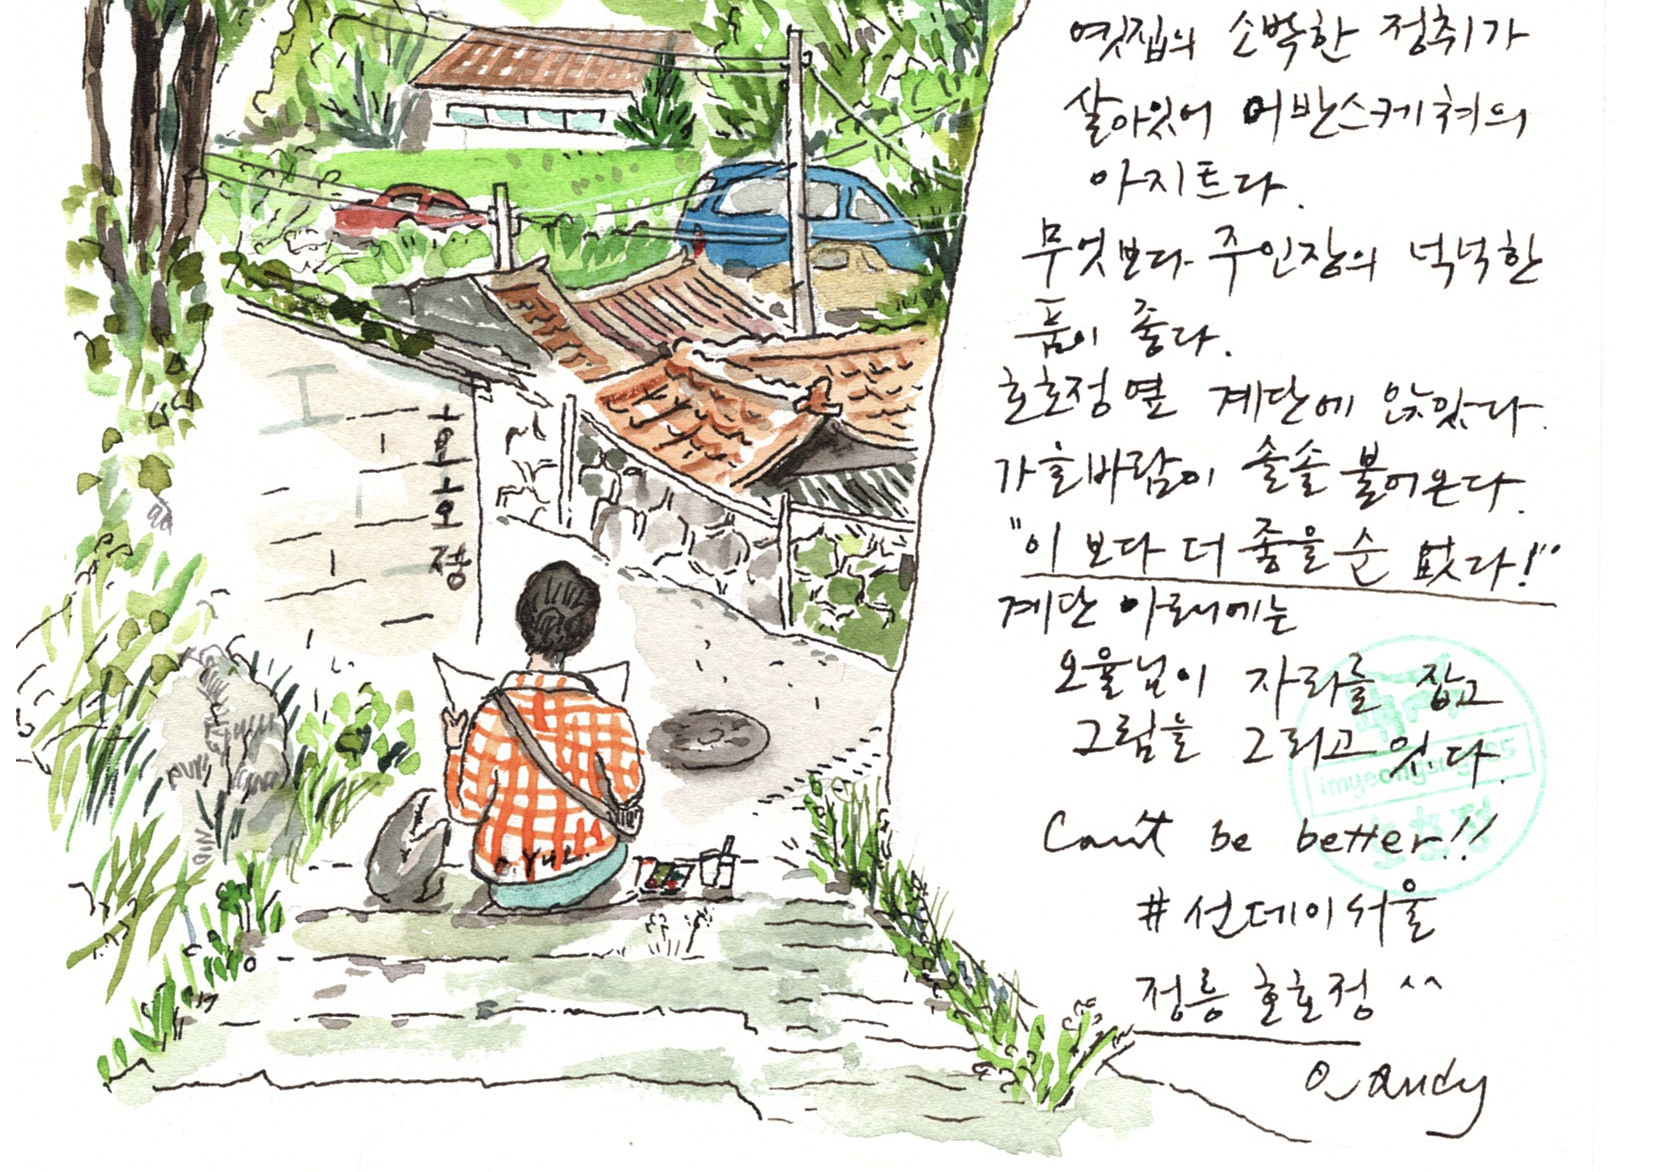 옛집의 소박한 정취가
살아있어 어반스케쳐의
아지트다.
무엇보다 주인장의 넉넉한
품이 좋다.
호호정 옆 계단에 앉았다.
가을바람이 솔솔 불어온다.
"이 보다 더 좋을 순 없다!"
계단 아래에는
오율님이 자리를 잡고
그림을 그리고 있다.
Can't be better!!
#선데이서울
정릉 호호정 ^^
O_andy
호
호
정